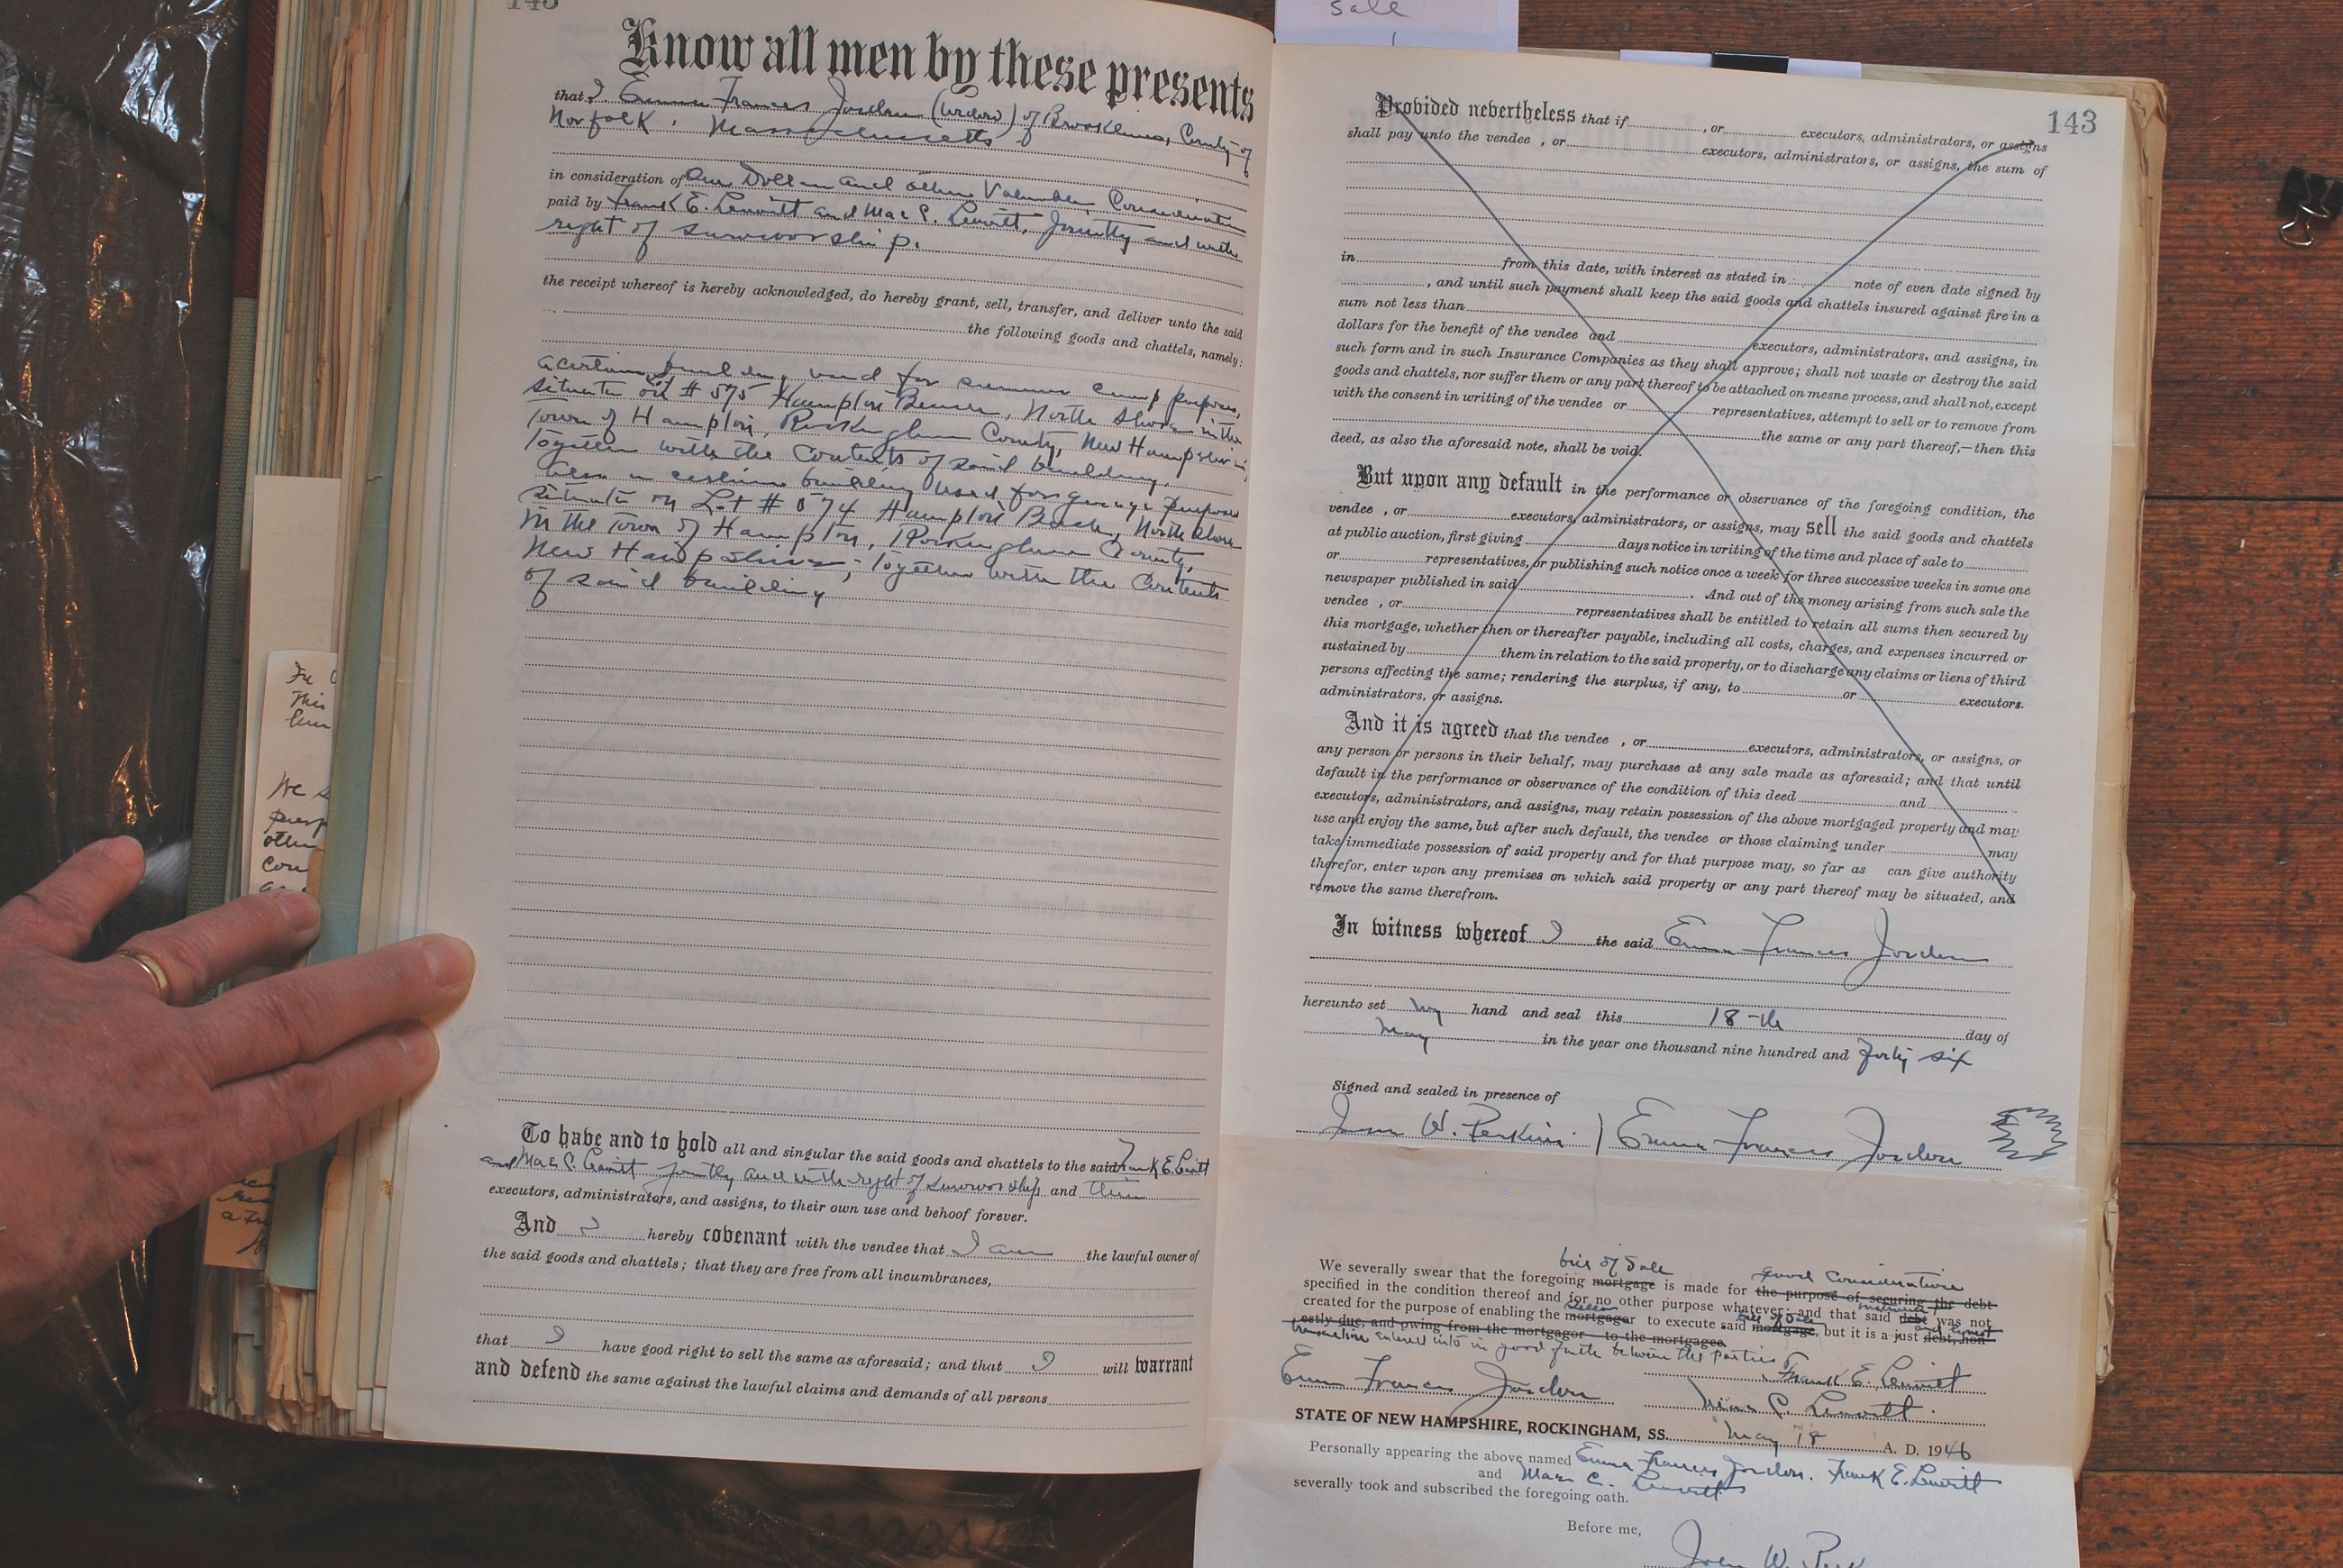 143
Know all men by these presents
that I Emma Frances Jordan (widow) of Brookline, County of
Norfolk, Massachusetts
in consideration of One Dollar and other Valuable Consideration
paid by Frank E. Leavitt and Mae C. Leavitt, Jointly and with
right of survivorship.
the receipt whereof is hereby acknowledged, do hereby grant, sell, transfer, and deliver unto the said
the following goods and chattels, namely:
a certain building used for summer camp purposes,
situate on # 575 Hampton Beach, North Shore in the
Town of Hampton, Rockingham County, New Hampshire;
Together with the Contents of said building.
Also a certain building used for garage purposes
situate on Lot # 574 Hampton Beach, North Shore
in the Town of Hampton, Rockingham County,
New Hampshire; Together with the Contents
of said building
To have and to hold all and singular the said goods and chattels to the said Frank E. Leavitt
and Mae C. Leavitt jointly and with right of survivorship and their
executors, administrators, and assigns, to their own use and behoof forever.
And I hereby covenant with the vendee that I am the lawful owner of
the said goods and chattels; that they are free from all incumbrances,
that I have good right to sell the same as aforesaid; and that I will warrant
and defend the same against the lawful claims and demands of all persons
We s
othe
sale
143
Provided nevertheless that if , or executors, administrators, or assigns
shall pay unto the vendee , or executors, administrators, or assigns, the sum of
in from this date, with interest as stated in note of even date signed by
, and until such payment shall keep the said goods and chattels insured against fire in a
sum not less than
dollars for the benefit of the vendee and executors, administrators, and assigns, in
such form and in such Insurance Companies as they shall approve; shall not waste or destroy the said
goods and chattels, nor suffer them or any part thereof to be attached on mesne process, and shall not, except
with the consent in writing of the vendee or representatives, attempt to sell or to remove from
the same or any part thereof,—then this
deed, as also the aforesaid note, shall be void.
But upon any default in the performance or observance of the foregoing condition, the
vendee , or executors, administrators, or assigns, may sell the said goods and chattels
at public auction, first giving days notice in writing of the time and place of sale to
or representatives, or publishing such notice once a week for three successive weeks in some one
newspaper published in said . And out of the money arising from such sale the
vendee , or representatives shall be entitled to retain all sums then secured by
this mortgage, whether then or thereafter payable, including all costs, charges, and expenses incurred or
sustained by them in relation to the said property, or to discharge any claims or liens of third
persons affecting the same; rendering the surplus, if any, to or executors.
administrators, or assigns.
And it is agreed that the vendee , or executors, administrators, or assigns, or
any person or persons in their behalf, may purchase at any sale made as aforesaid; and that until
default in the performance or observance of the condition of this deed and
executors, administrators, and assigns, may retain possession of the above mortgaged property and may
use and enjoy the same, but after such default, the vendee or those claiming under may
take immediate possession of said property and for that purpose may, so far as can give authority
therefor, enter upon any premises on which said property or any part thereof may be situated, and
remove the same therefrom.
In witness whereof I the said Emma Frances Jordan
hereunto set my hand and seal this 18-th day of
May in the year one thousand nine hundred and forty six
Signed and sealed in presence of
W. Perkins ) Emma Frances Jordan
bill of Sale good Consideration
We severally swear that the foregoing mortgage is made for the purpose of securing the debt
specified in the condition thereof and for no other purpose whatever; and that said debt was not
created for the purpose of enabling the mortgagor to execute said mortgage, but it is a just debt, hon-
estly due, and owing from the mortgagor to the mortgagee
transaction entered into in good faith between the parties
Frank E. Leavitt
Emma Frances Jordan
C. Leavitt
STATE OF NEW HAMPSHIRE, ROCKINGHAM, SS. May 18 A. D. 1946
Personally appearing the above named Emma Frances Jordan, Frank E. Leavitt
and Mae C. Leavitt
severally took and subscribed the foregoing oath.
Before me,